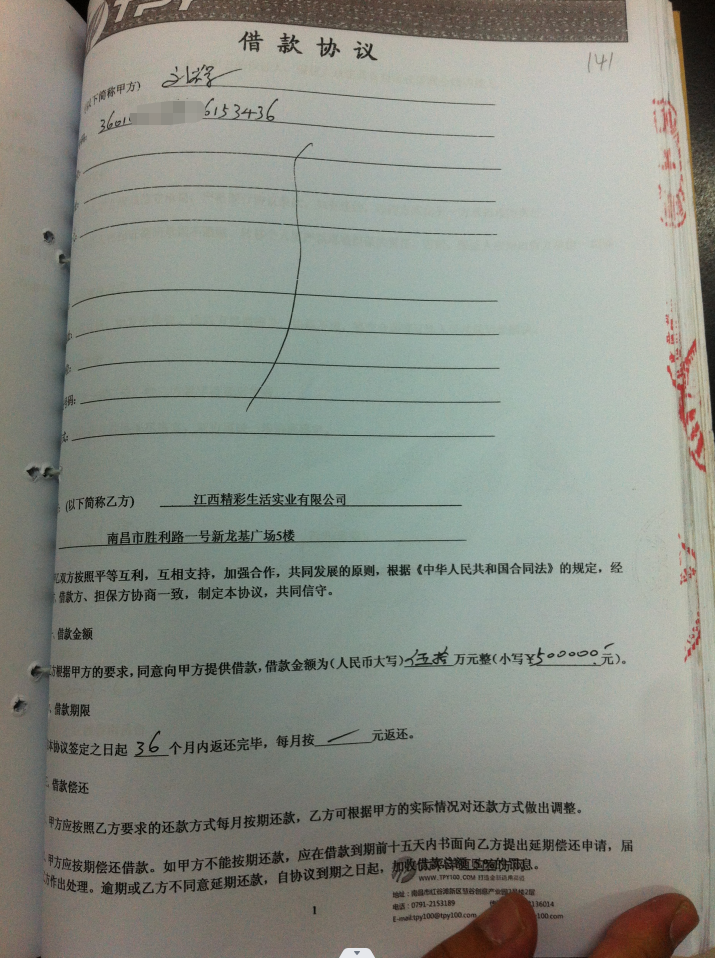 TPY
借款协议
141
以下简称甲方)
6153436
(以下简称乙方) 江西精彩生活实业有限公司
南昌市胜利路一号新龙基广场5楼
双方按照平等互利，互相支持，加强合作，共同发展的原则，根据《中华人民共和国合同法》的规定，经
借款方、担保方协商一致，制定本协议，共同信守。
借款金额
根据甲方的要求，同意向甲方提供借款，借款金额为(人民币大写)伍拾万元整(小写¥500000元)。
借款期限
本协议签定之日起 36 个月内返还完毕，每月按 元返还。
借款偿还
甲方应按照乙方要求的还款方式每月按期还款，乙方可根据甲方的实际情况对还款方式做出调整。
甲方应按期偿还借款。如甲方不能按期还款，应在借款到期前十五天内书面向乙方提出延期偿还申请，届
作出处理。逾期或乙方不同意延期还款，自协议到期之日起，加收借款总额
WWW.TPY100.COM
地址：南昌市红谷滩新区慧谷创意产业园
电话：0791-2153189
136014
E-mail:tpy100@tpy100.com
1